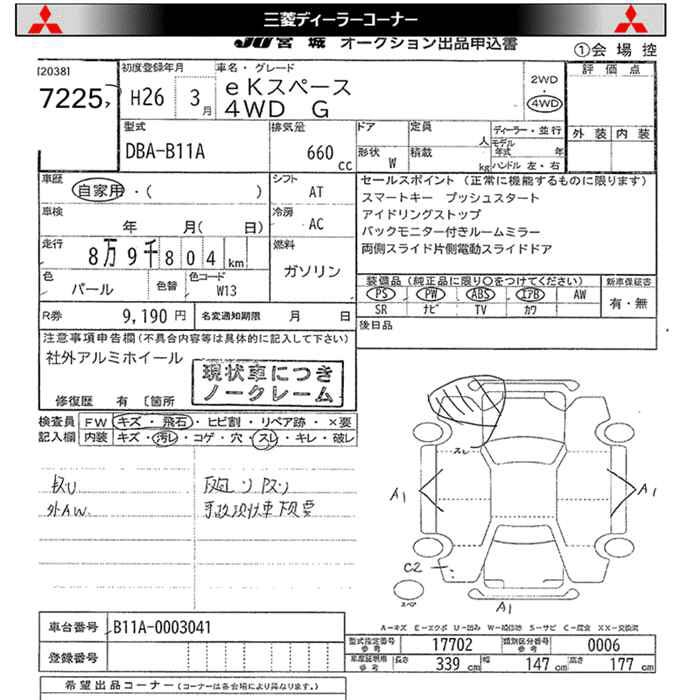 三菱ディーラーコーナー
JU宮城 オークション出品申込書
①会場控
[2038]
7225
初度登録年月
H26 3月
車名・グレード
eKスペース
4WD G
2WD
4WD
評価点
外装 内装
型式
DBA-B11A
排気量
660 cc
ドア
定員
人
形状
W
積載
kg
ディーラー・並行
モデル年式 年
ハンドル 左・右
車歴
自家用・( )
シフト
AT
車検
年 月( 日)
冷房
AC
走行
8万9千804km
燃料
ガソリン
色
パール
色替
色コード
W13
セールスポイント (正常に機能するものに限ります)
スマートキー プッシュスタート
アイドリングストップ
バックモニター付きルームミラー
両側スライド片側電動スライドドア
装備品(純正品に限り○をつけてください)
新車保証書
PS PW ABS エアB AW
SR ナビ TV カワ
有・無
R券
9,190 円
名変通知期限 月 日
後日品
注意事項申告欄(不具合内容等は具体的に記入して下さい)
社外アルミホイール
現状車につき
ノークレーム
修復歴 有 〔箇所
検査員
記入欄
FW キズ・飛石・ヒビ割・リペア跡・×要
内装 キズ・汚レ・コゲ・穴・スレ・キレ・破レ
外AW.
スレ
A1
A1
C2
スペア
A1
A-キズ E-エクボ U-凹み W-板金跡 S-サビ C-腐食 XX-交換済
車台番号 B11A-0003041
登録番号
型式指定番号 参考 17702
類別区分番号 参考 0006
車庫証明用 参考 長さ 339 cm 幅 147 cm 高さ 177 cm
希望出品コーナー(コーナーは各会場により異なります。)